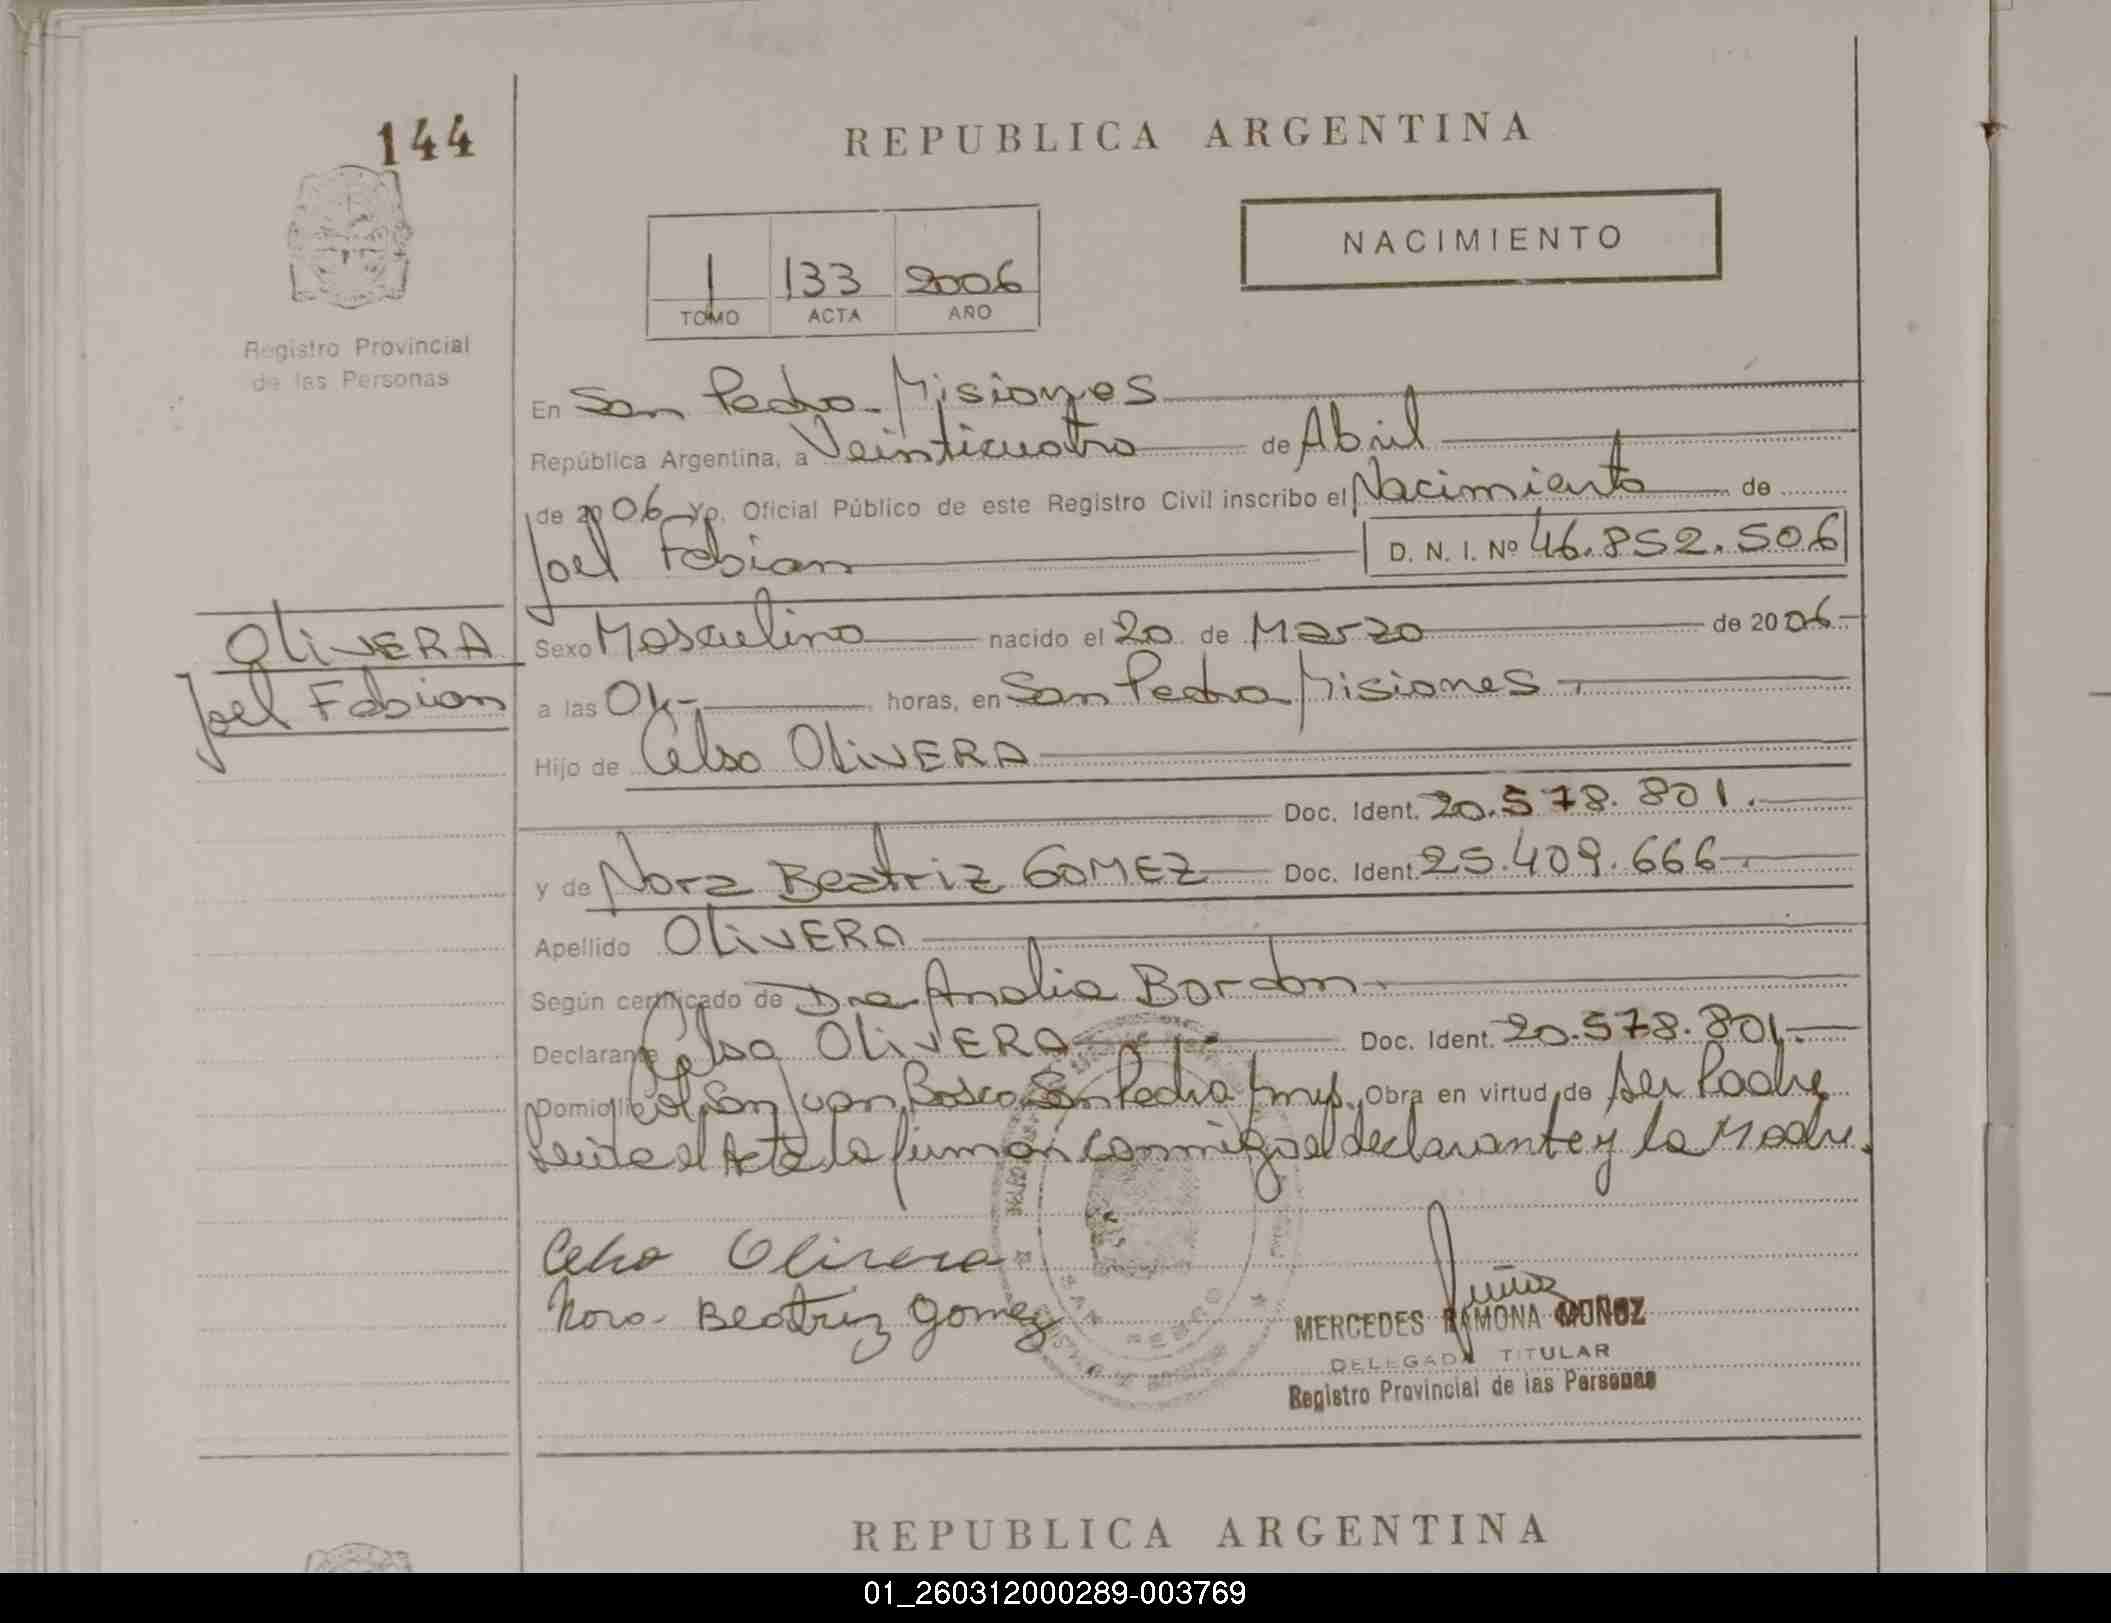 144
REPUBLICA ARGENTINA
NACIMIENTO
1 133 2006
TOMO ACTA AÑO
Registro Provincial
de las Personas
En San Pedro - Misiones
República Argentina, a Veinticuatro de Abril
de 2006 Yo, Oficial Público de este Registro Civil inscribo el Nacimiento de
Joel Fabian D. N. I. Nº 46.852.506
OLIVERA
Joel Fabian
Sexo Masculino nacido el 20 de Marzo de 2006
a las 04- horas, en San Pedro Misiones
Hijo de Celso OLIVERA
Doc. Ident. 20.578.801.
y de Nora Beatriz GOMEZ Doc. Ident. 25.409.666
Apellido OLIVERA
Según certificado de Dra Analia Bordon
Declarante Celso OLIVERA Doc. Ident. 20.578.801.
Domicilio Col San Juan Bosco San Pedro Mnes. Obra en virtud de ser Padre
Leida el Acta la firman conmigo el declarante y la Madre.
Celso Olivera
Nora Beatriz Gomez
SAN PEDRO
MERCEDES RAMONA MUÑOZ
DELEGADA TITULAR
Registro Provincial de las Personas
REPUBLICA ARGENTINA
01_260312000289-003769